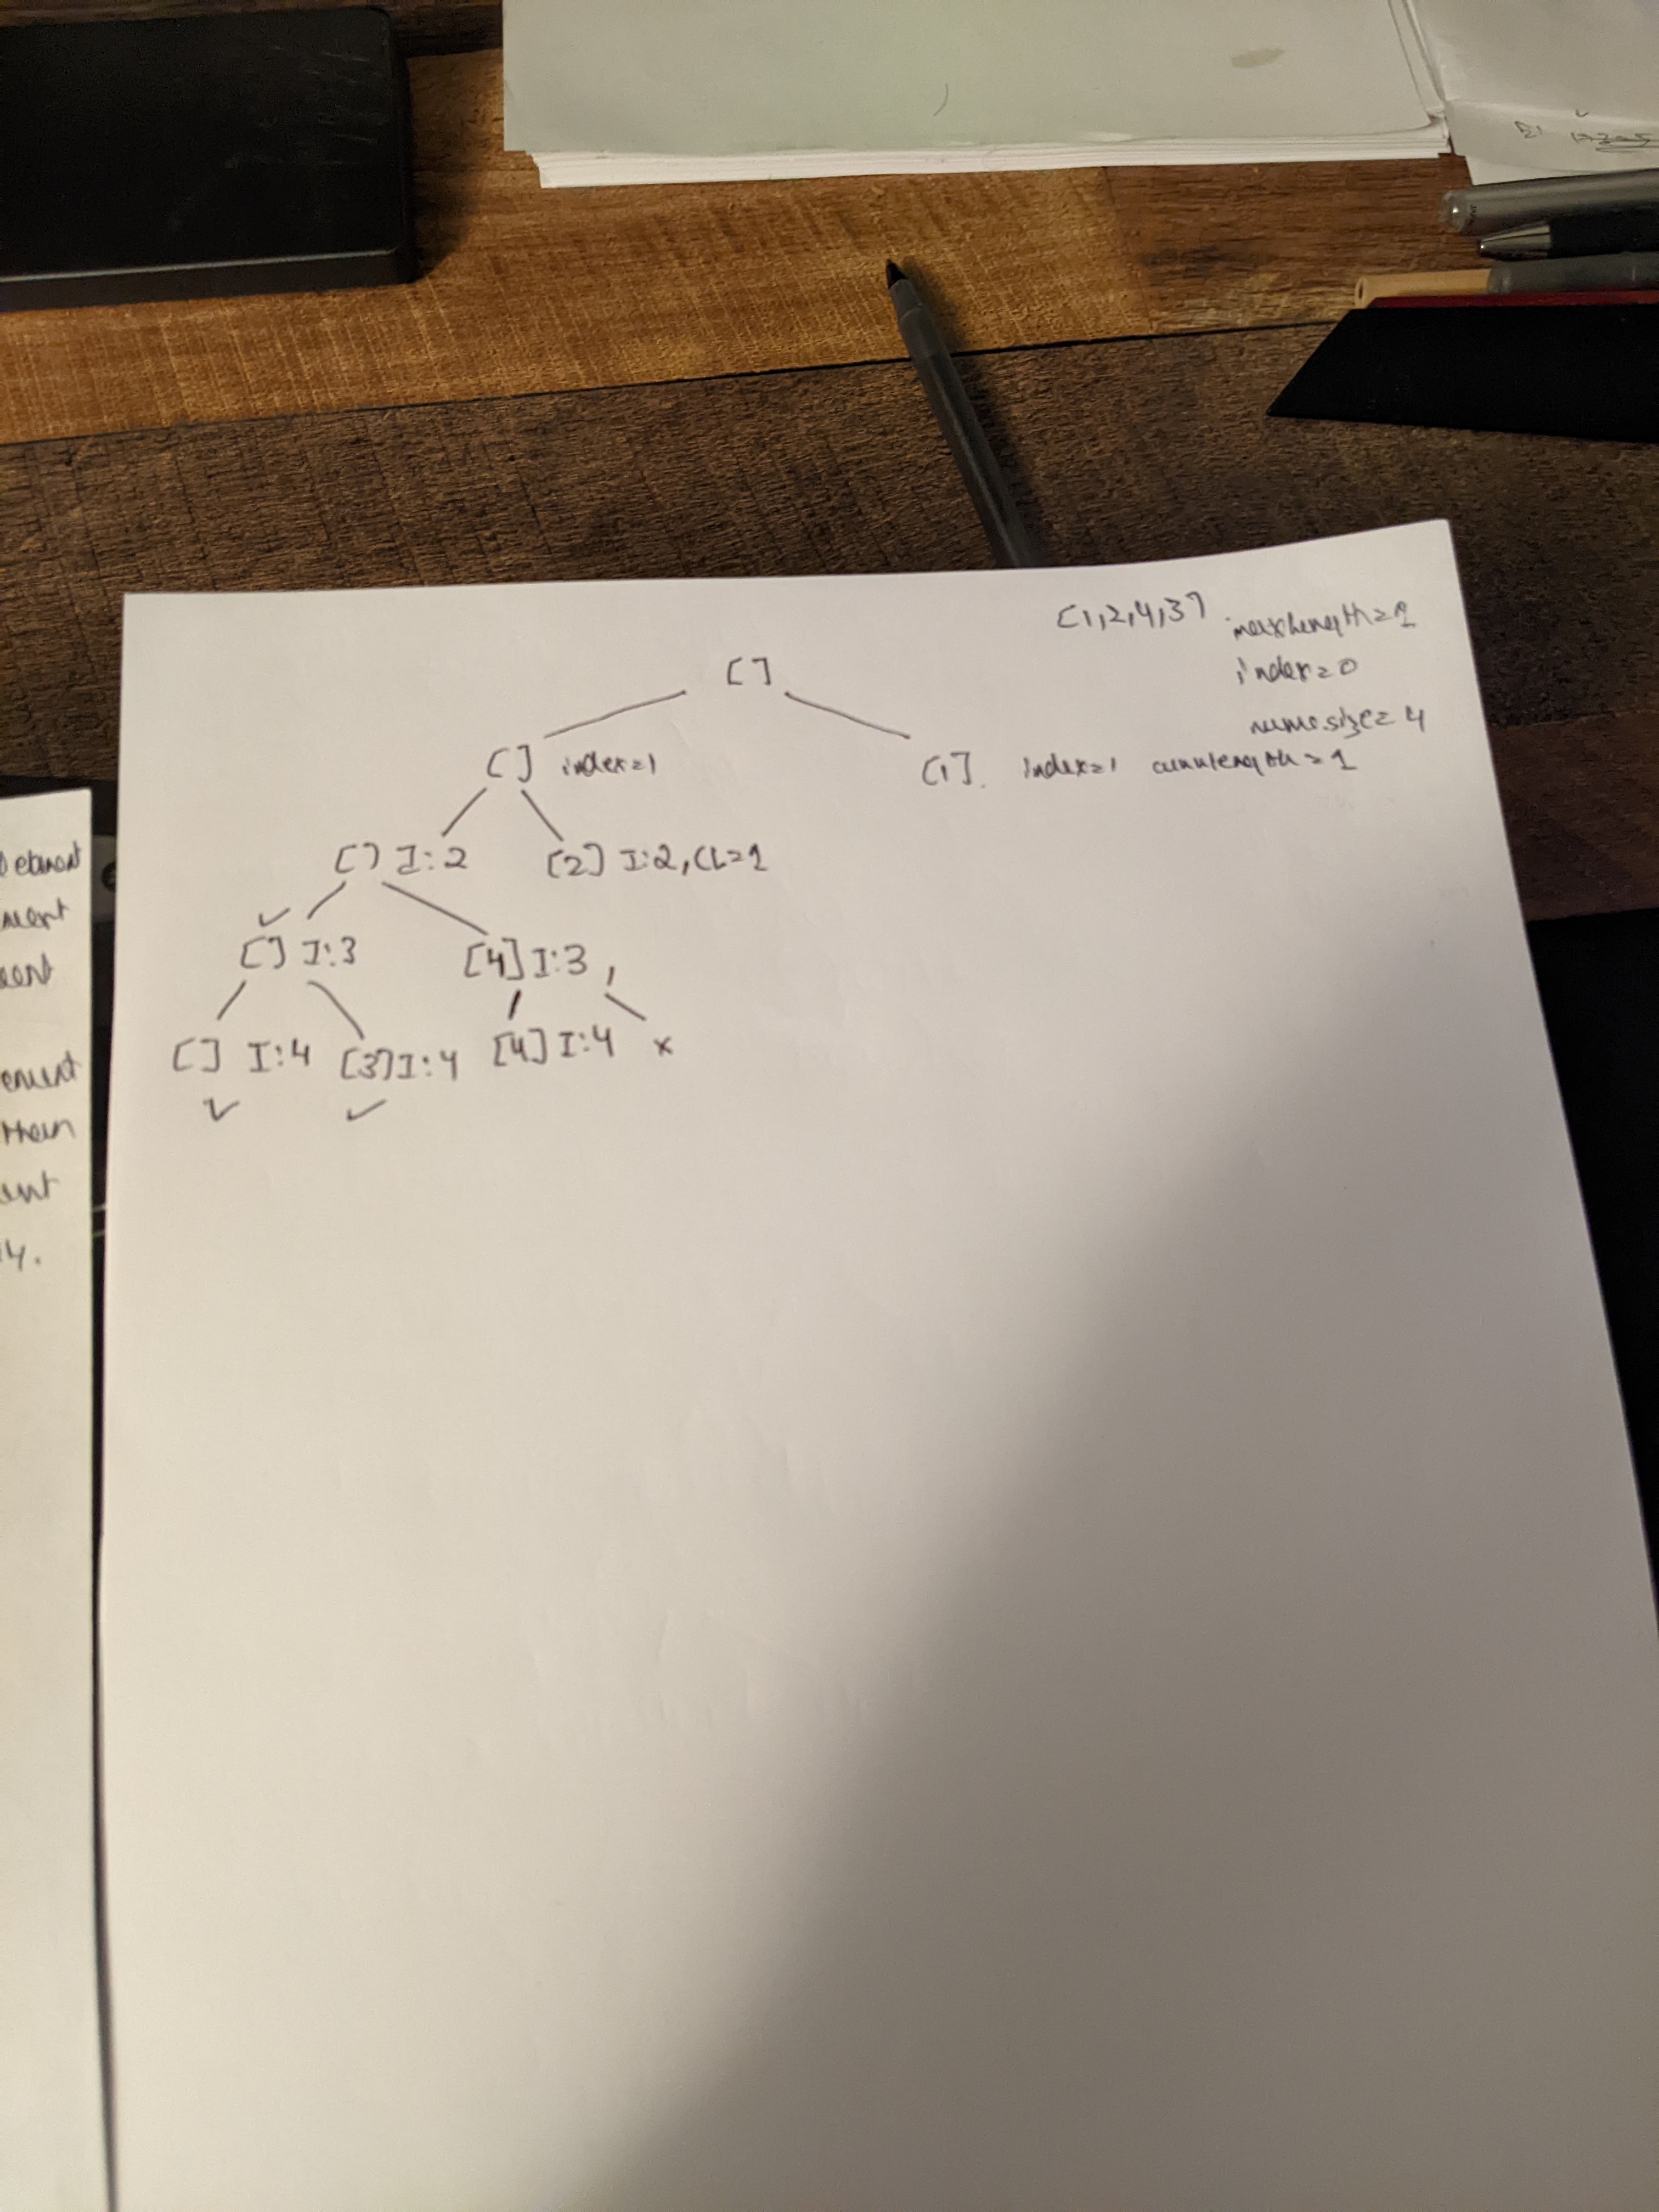 [1,2,4,3] maxlength=1
index=0
nums.size=4
[]
[] index=1
[1]. index=1 currlength=1
[] I:2 [2] I:2, CL=1
[] I:3 [4] I:3,
[] I:4 [3] I:4 [4] I:4 x
element
ement
then
4.